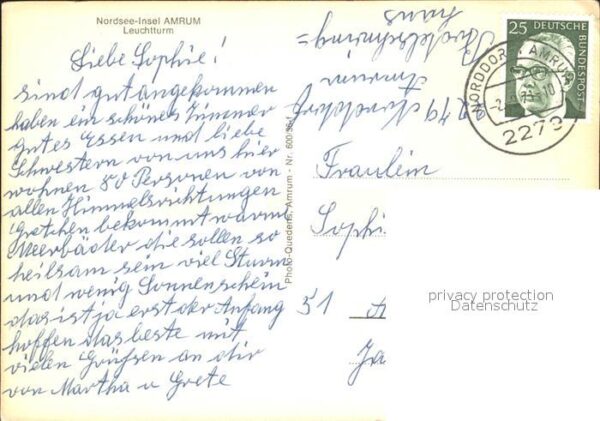 Nordsee-Insel AMRUM
Leuchtturm
Liebe Sophie!
sind gut angekommen
haben ein schönes Zimmer
gutes Essen und liebe
Schwestern von uns hier
wohnen 80 Personen von
allen Himmelsrichtungen
Gretchen bekommt warme
Meerbäder die sollen so
heilsam sein viel Sturm
und wenig Sonnenschein
das ist ja erst der Anfang
hoffen das beste mit
vielen Grüßen an dir
von Martha u Grete
Photo-Quedens, Amrum - Nr. 600/35f
2279 Norddorf
Amrum
haus
25 DEUTSCHE
BUNDESPOST
NORDDORF AMRUM
2279
Fräulein
Sophi
51 A
Ja
privacy protection
Datenschutz